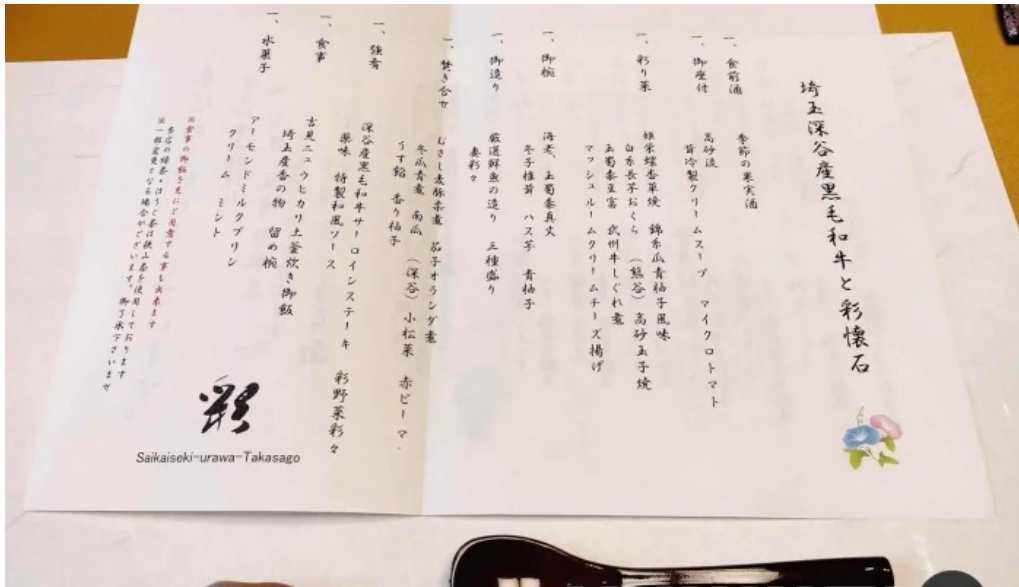 埼玉深谷産黒毛和牛と彩懐石
一、食前酒
季節の果実酒
一、御座付
高砂淡
旨冷製クリームスープ マイクロトマト
一、彩り菜
姫栄螺香草焼 錦糸瓜青柚子風味
白糸長芋おくら (熊谷)高砂玉子焼
玉蜀黍豆富 武州牛しぐれ煮
マッシュルームクリームチーズ揚げ
一、御椀
海老、玉蜀黍真丈
冬子椎茸 ハス芋 青柚子
一、御造り
厳選鮮魚の造り 三種盛り
妻彩々
一、焚き合せ
むさし麦豚角煮 茄子オランダ煮
冬瓜青煮 南瓜 (深谷)小松菜 赤ピーマン
うす餡 香り柚子
一、強肴
深谷産黒毛和牛サーロインステーキ 彩野菜彩々
薬味 特製和風ソース
一、食事
吉見ニュウヒカリ土釜炊き御飯
埼玉産香の物 留め椀
一、水菓子
アーモンドミルクプリン
クリーム ミント
※食事の御飯を先にご用意する事も出来ます
当店の緑茶・ほうじ茶は狭山茶を使用しております
※一部変更となる場合がございます。御了承下さいませ
彩
Saikaiseki-urawa-Takasago